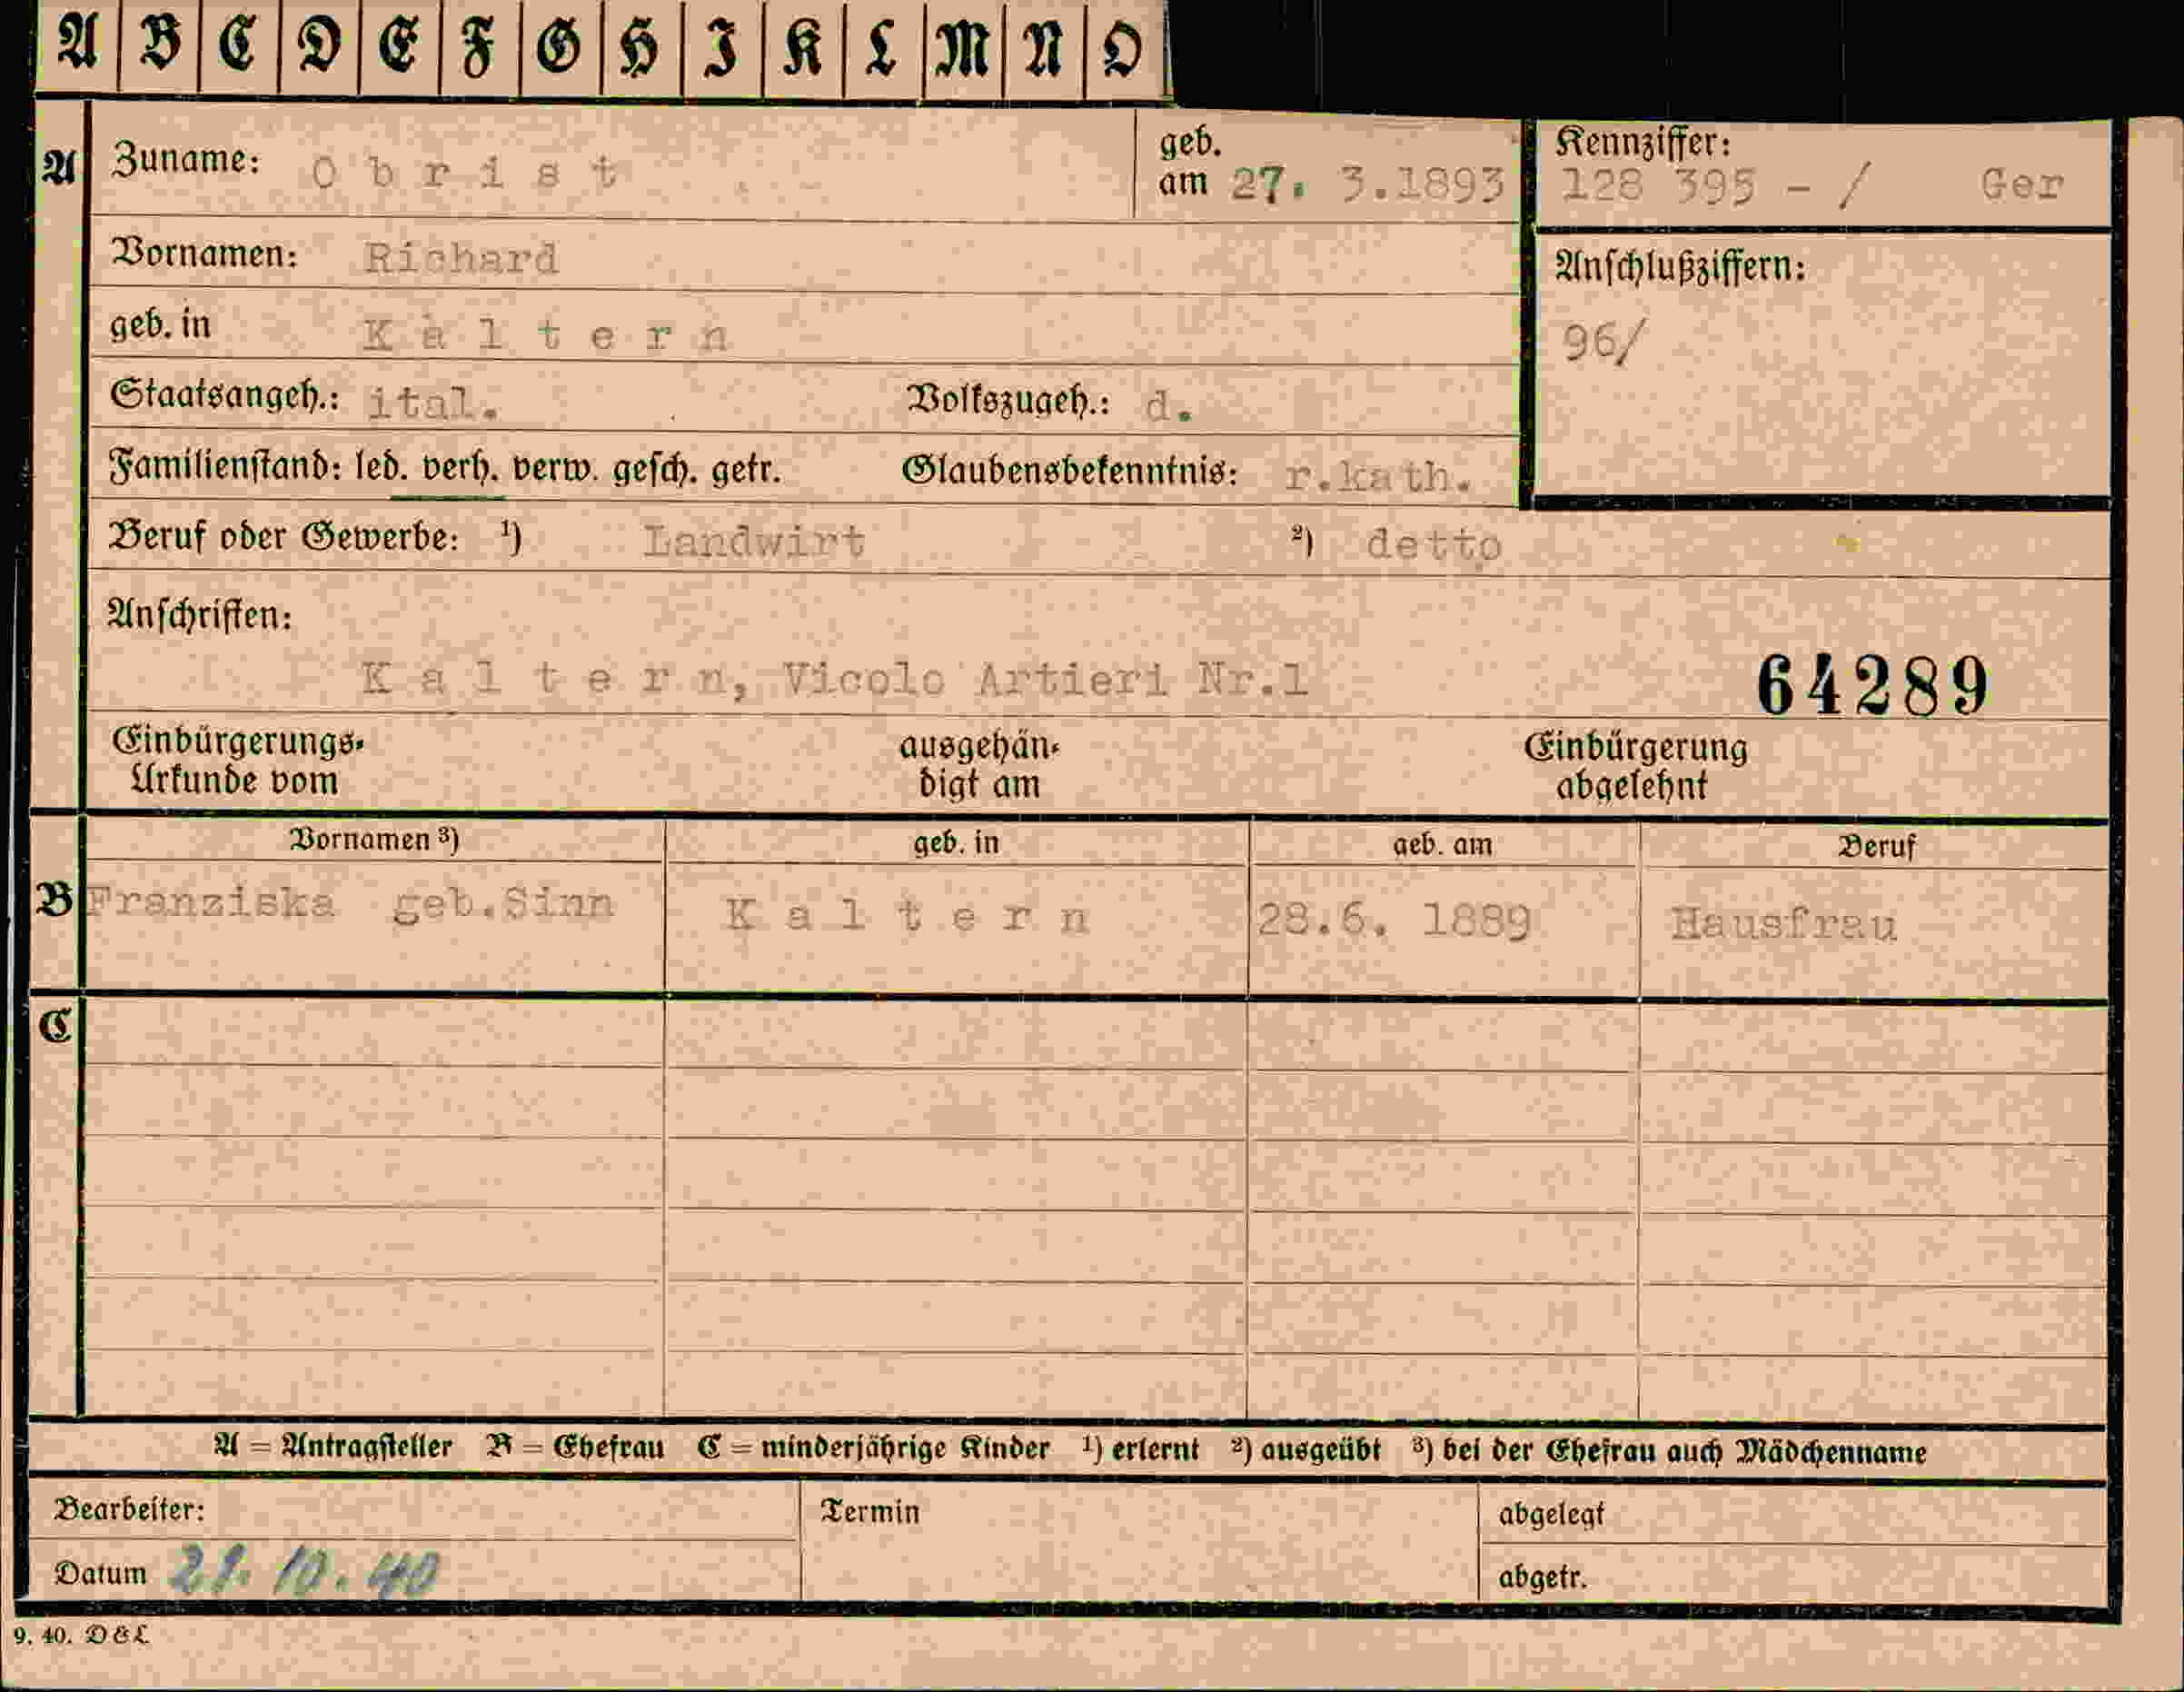 A B C D E F G H I K L M N O
A Zuname: Obrist geb. am 27. 3.1893 Kennziffer: 128 395 - / Ger
Vornamen: Richard Anschlußziffern:
geb. in Kaltern 96/
Staatsangeh.: ital. Volkszugeh.: d.
Familienstand: led. verh. verw. gesch. getr. Glaubensbekenntnis: r.kath.
Beruf oder Gewerbe: ¹) Landwirt ²) detto
Anschriften:
Kaltern, Vicolo Artieri Nr.1 64289
Einbürgerungs- ausgehän- Einbürgerung
Urkunde vom digt am abgelehnt
Vornamen ³) geb. in geb. am Beruf
B Franziska geb.Sinn Kaltern 28.6. 1889 Hausfrau
C
A = Antragsteller B = Ehefrau C = minderjährige Kinder ¹) erlernt ²) ausgeübt ³) bei der Ehefrau auch Mädchenname
Bearbeiter: Termin abgelegt
Datum 10.40 abgetr.
9. 40. D & L